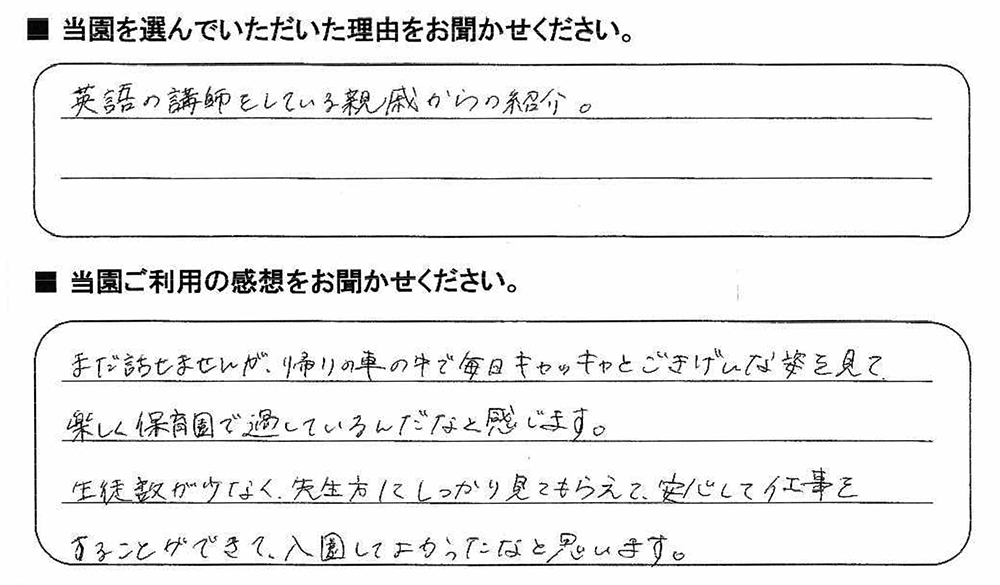 ■ 当園を選んでいただいた理由をお聞かせください。
英語の講師をしている親戚からの紹介。
■ 当園ご利用の感想をお聞かせください。
まだ話せませんが、帰りの車の中で毎日キャッキャとごきげんな姿を見て、
楽しく保育園で過しているんだなと感じます。
生徒数が少なく、先生方にしっかり見てもらえて、安心して仕事を
することができて、入園してよかったなと思います。